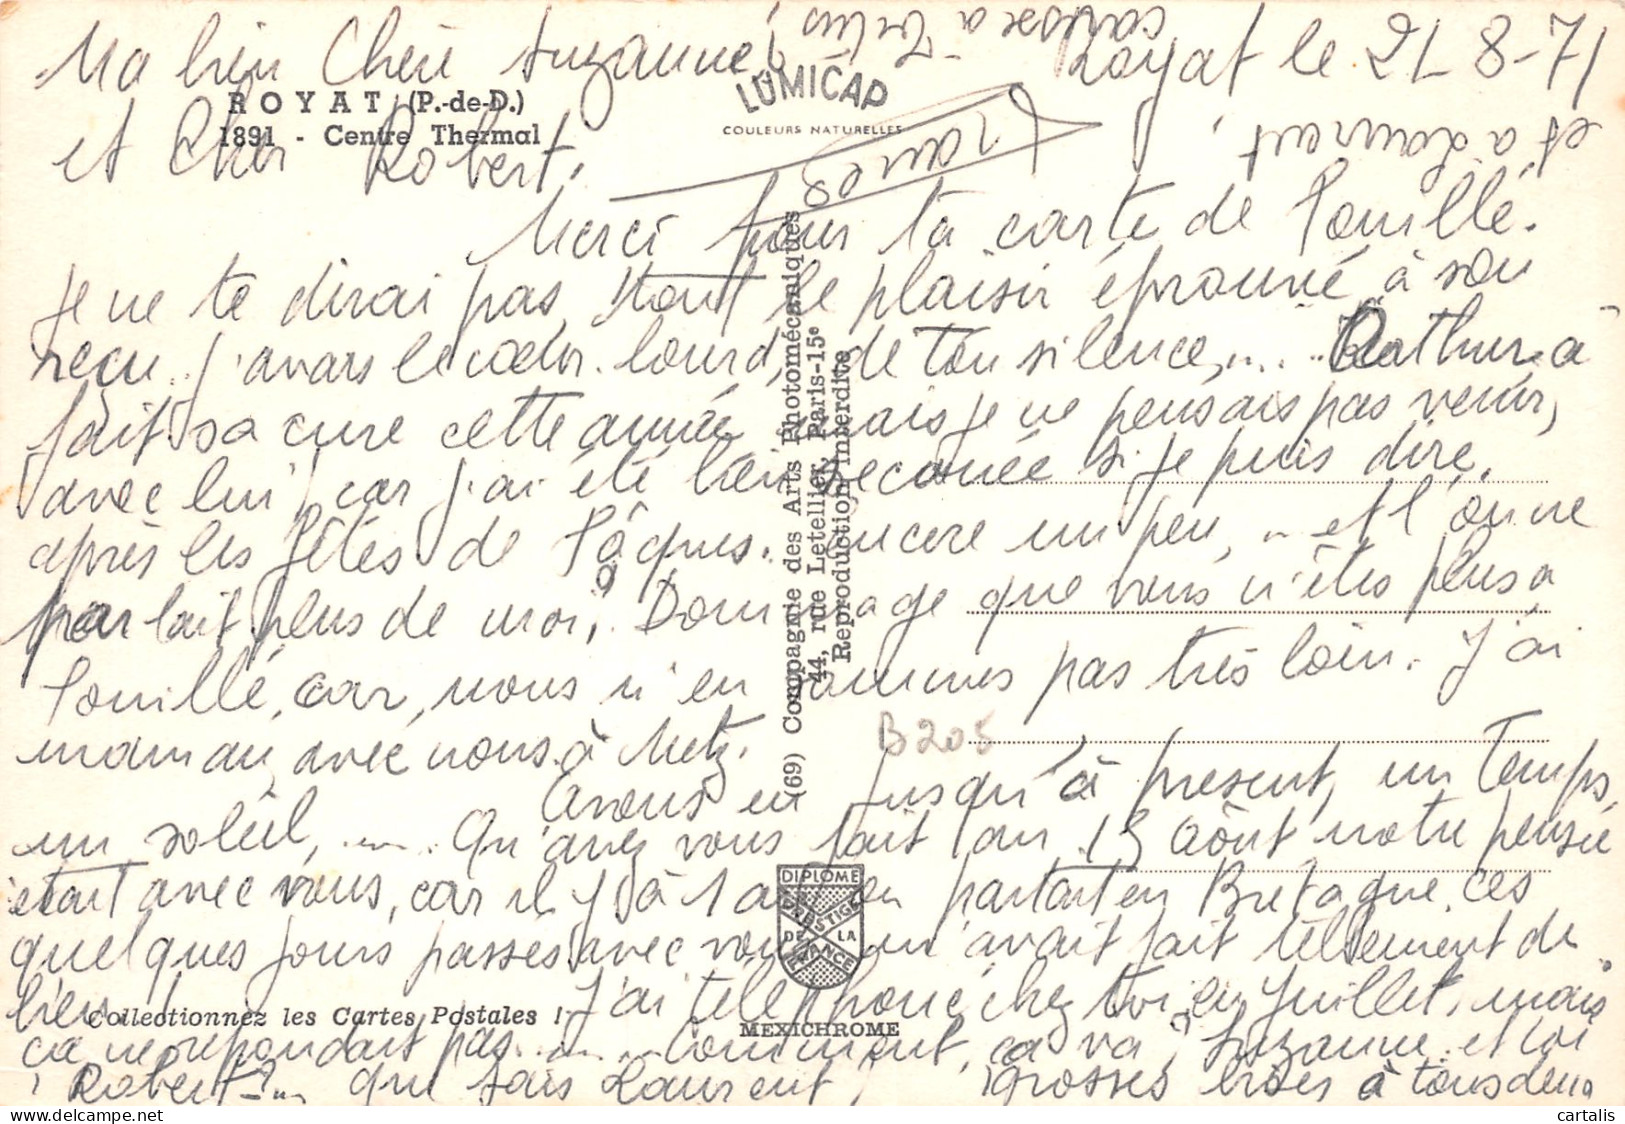 Royat le 21-8-71
Ma bien Chère Suzanne,
et Cher Robert,
ROYAT (P.-de-D.)
1891 - Centre Thermal
LUMICAP
COULEURS NATURELLES
Merci pour ta carte de Pouillé.
Je ne te dirai pas tout le plaisir éprouvé, à son
reçu. J'avais le cœur lourd, de ton silence, ... Arthur a
fait sa cure cette année mais je ne pensais pas venir,
avec lui, car j'ai été bien secouée si je puis dire,
après les fêtes de Pâques. encore un peu, .. et l'on ne
parlait plus de moi. Dommage que vous n'êtes plus à
Pouillé, car, nous n'en sommes pas très loin. J'ai
maman, avec nous à Metz.
Avons eu jusqu'à présent, un temps,
un soleil, ... Qu'avez vous fait au 15 Août notre pensée
était avec vous, car il y a 1 an on partait en Bretagne, ces
quelques jours passés avec vous m'avait fait tellement de
bien. J'ai téléphoné chez toi en Juillet, mais
ça ne répondait pas ... Comment, ça va, Suzanne et toi
Robert? ... que fais Laurent, grosses bises à tous deux
et a Laurent,
B205
(69) Compagnie des Arts Photomécaniques
44, rue Letellier, Paris-15e
Reproduction interdite
DIPLOME
PRESTIGE
DE LA
FRANCE
Collectionnez les Cartes Postales !
MEXICHROME
cartalis